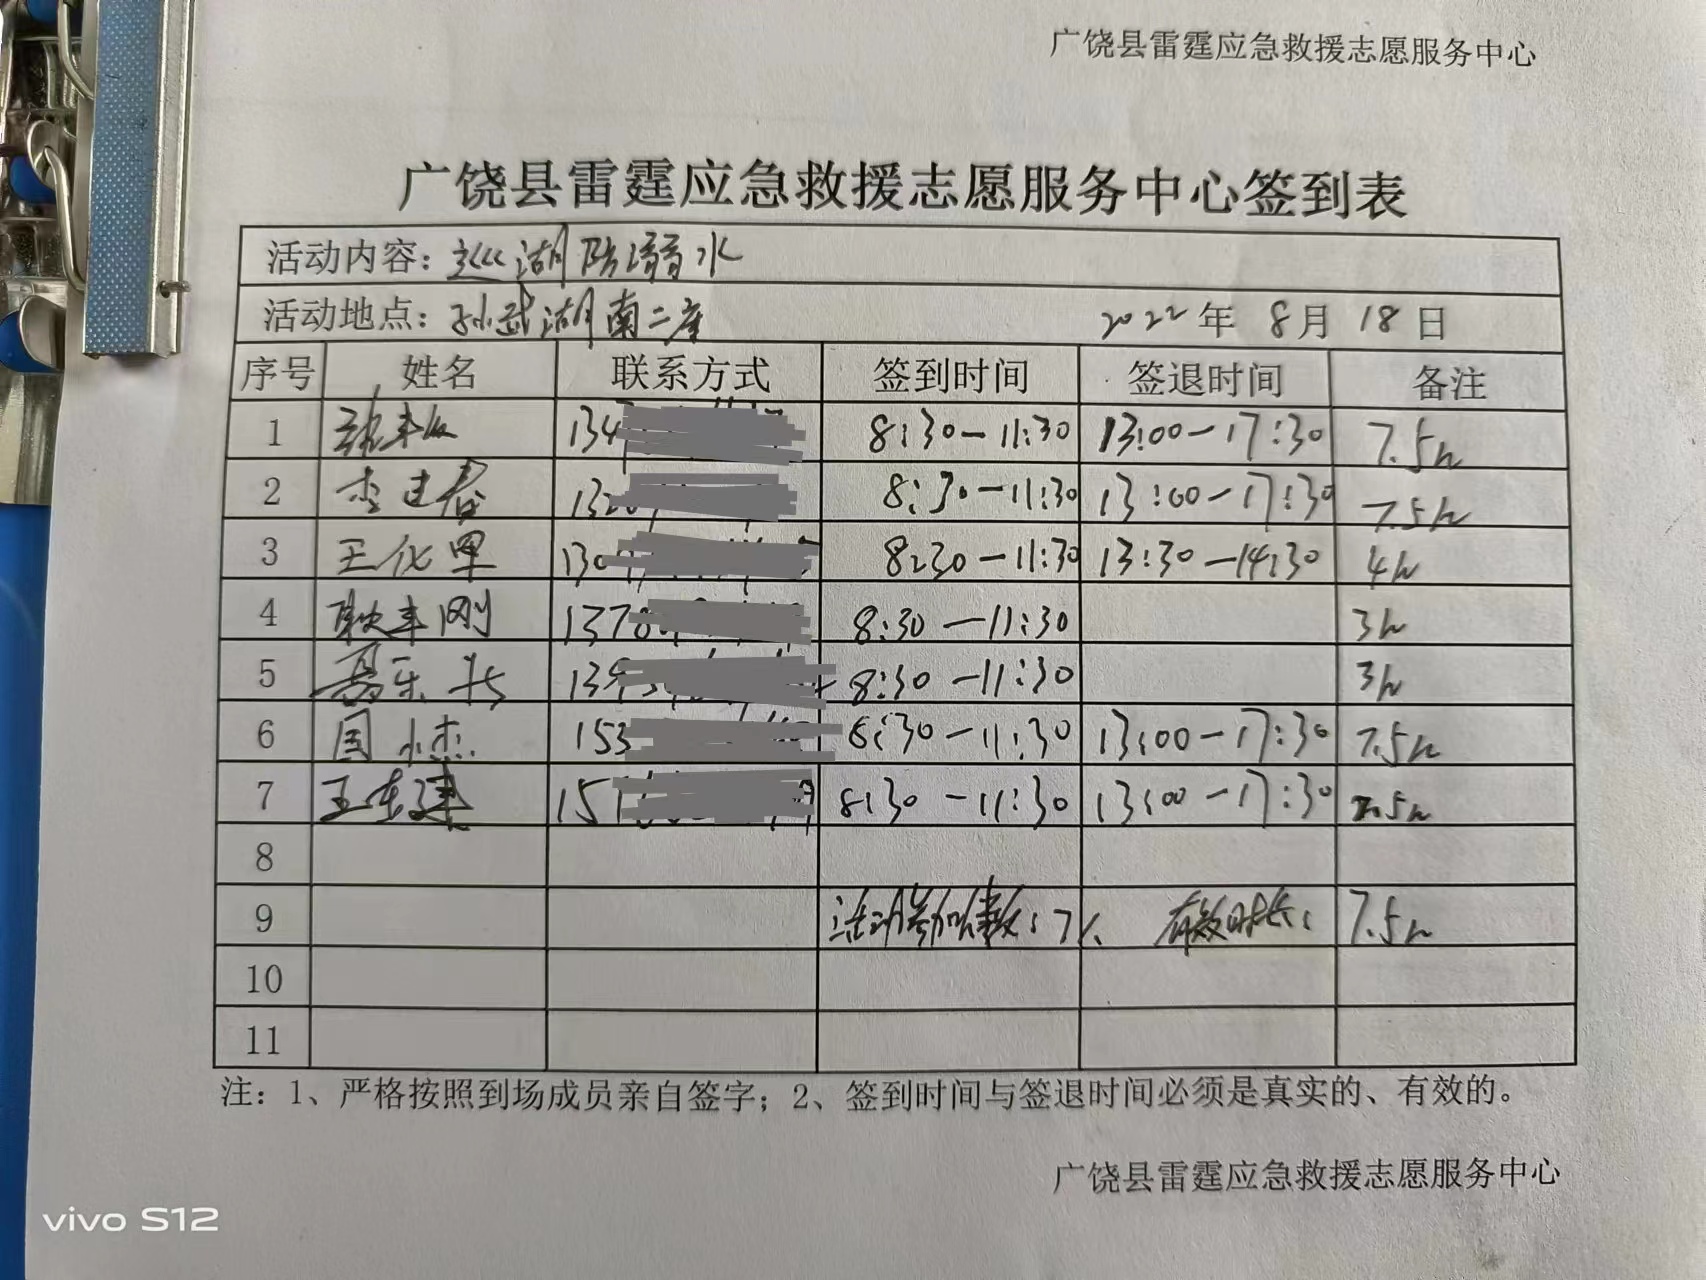 广饶县雷霆应急救援志愿服务中心
广饶县雷霆应急救援志愿服务中心签到表
活动内容：巡湖防溺水
活动地点：孙武湖南二库 2022年8月18日
序号 姓名 联系方式 签到时间 签退时间 备注
1 134 8:30-11:30 13:00-17:30 7.5h
2 李建春 132 8:30-11:30 13:00-17:30 7.5h
3 王化军 130 8:30-11:30 13:30-14:30 4h
4 耿丰刚 1378 8:30-11:30 3h
5 高乐 139 8:30-11:30 3h
6 国小杰 153 8:30-11:30 13:00-17:30 7.5h
7 王东建 151 8:30-11:30 13:00-17:30 7.5h
8
9 活动参加人数：7人 有效时长： 7.5h
10
11
注：1、严格按照到场成员亲自签字；2、签到时间与签退时间必须是真实的、有效的。
广饶县雷霆应急救援志愿服务中心
vivo S12